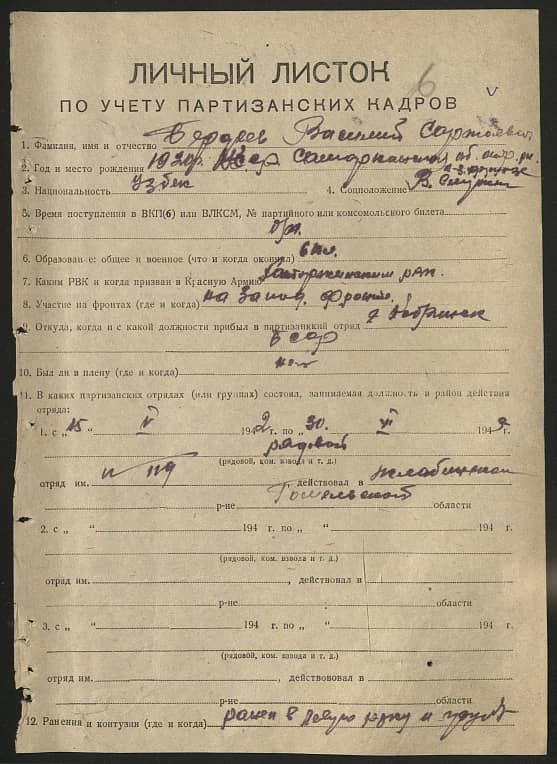 6 v
ЛИЧНЫЙ ЛИСТОК
ПО УЧЕТУ ПАРТИЗАНСКИХ КАДРОВ
1. Фамилия, имя и отчество Василий
2. Год и место рождения 1920г. обл.
3. Национальность Узбек 4. Соцположение
5. Время поступления в ВКП(б) или ВЛКСМ, № партийного или комсомольского билета
б/п.
6. Образование: общее и военное (что и когда окончил) 6 кл.
7. Каким РВК и когда призван в Красную Армию
8. Участие на фронтах (где и когда) на Запад. фронте.
9. Откуда, когда и с какой должности прибыл в партизанский отряд
БССР
10. Был ли в плену (где и когда) нет
11. В каких партизанских отрядах (или группах) состоял, занимаемая должность и район действия
отряда:
1. с „ 15 “ 1942 г. по „ 30. “ VI 194 г.
рядовой
(рядовой, ком. взвода и т. д.)
отряд им. 119, действовал в
р-не Гомельской области
2. с „ “ 194 г. по „ “ 194 г.
(рядовой, ком. взвода и т. д.)
отряд им. , действовал в
р-не области
3. с „ “ 194 г. по „ “ 194 г.
(рядовой, ком. взвода и т. д.)
отряд им. , действововал в
р-не области
12. Ранения и контузии (где и когда) ранен в левую руку и